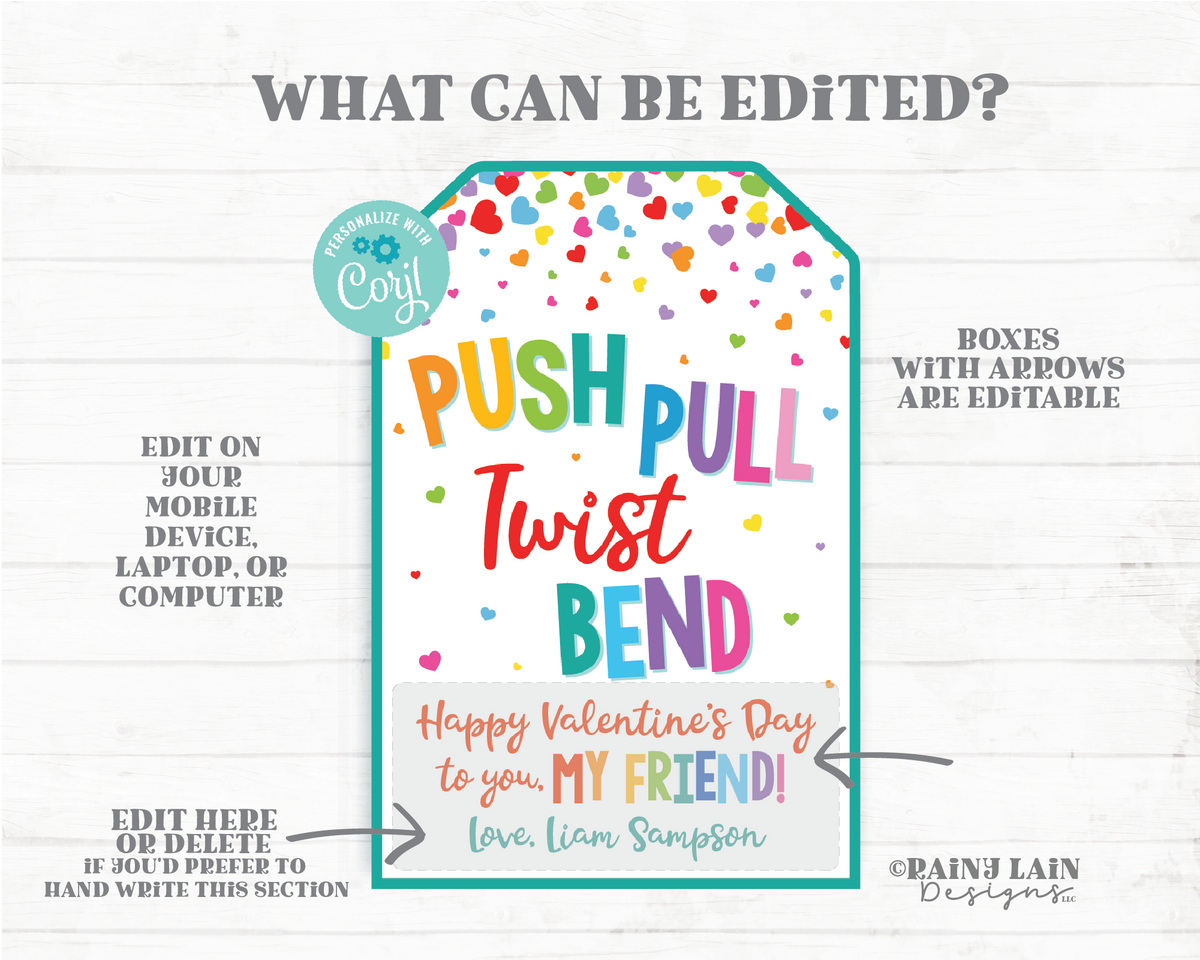 WHAT CAN BE EDiTED?
PERSONALIZE WITH
Corjl
PUSH
PULL
Twist
BEND
Happy Valentine's Day
to you, MY FRIEND!
Love, Liam Sampson
BOXES
WiTH ARROWS
ARE EDiTABLE
EDIT ON
YOUR
MOBiLE
DEViCE,
LAPTOP, OR
COMPUTER
EDIT HERE
OR DELETE
iF YOU'D PREFER TO
HAND WRiTE THiS SECTiON
©RAiNY LAiN
Designs LLC